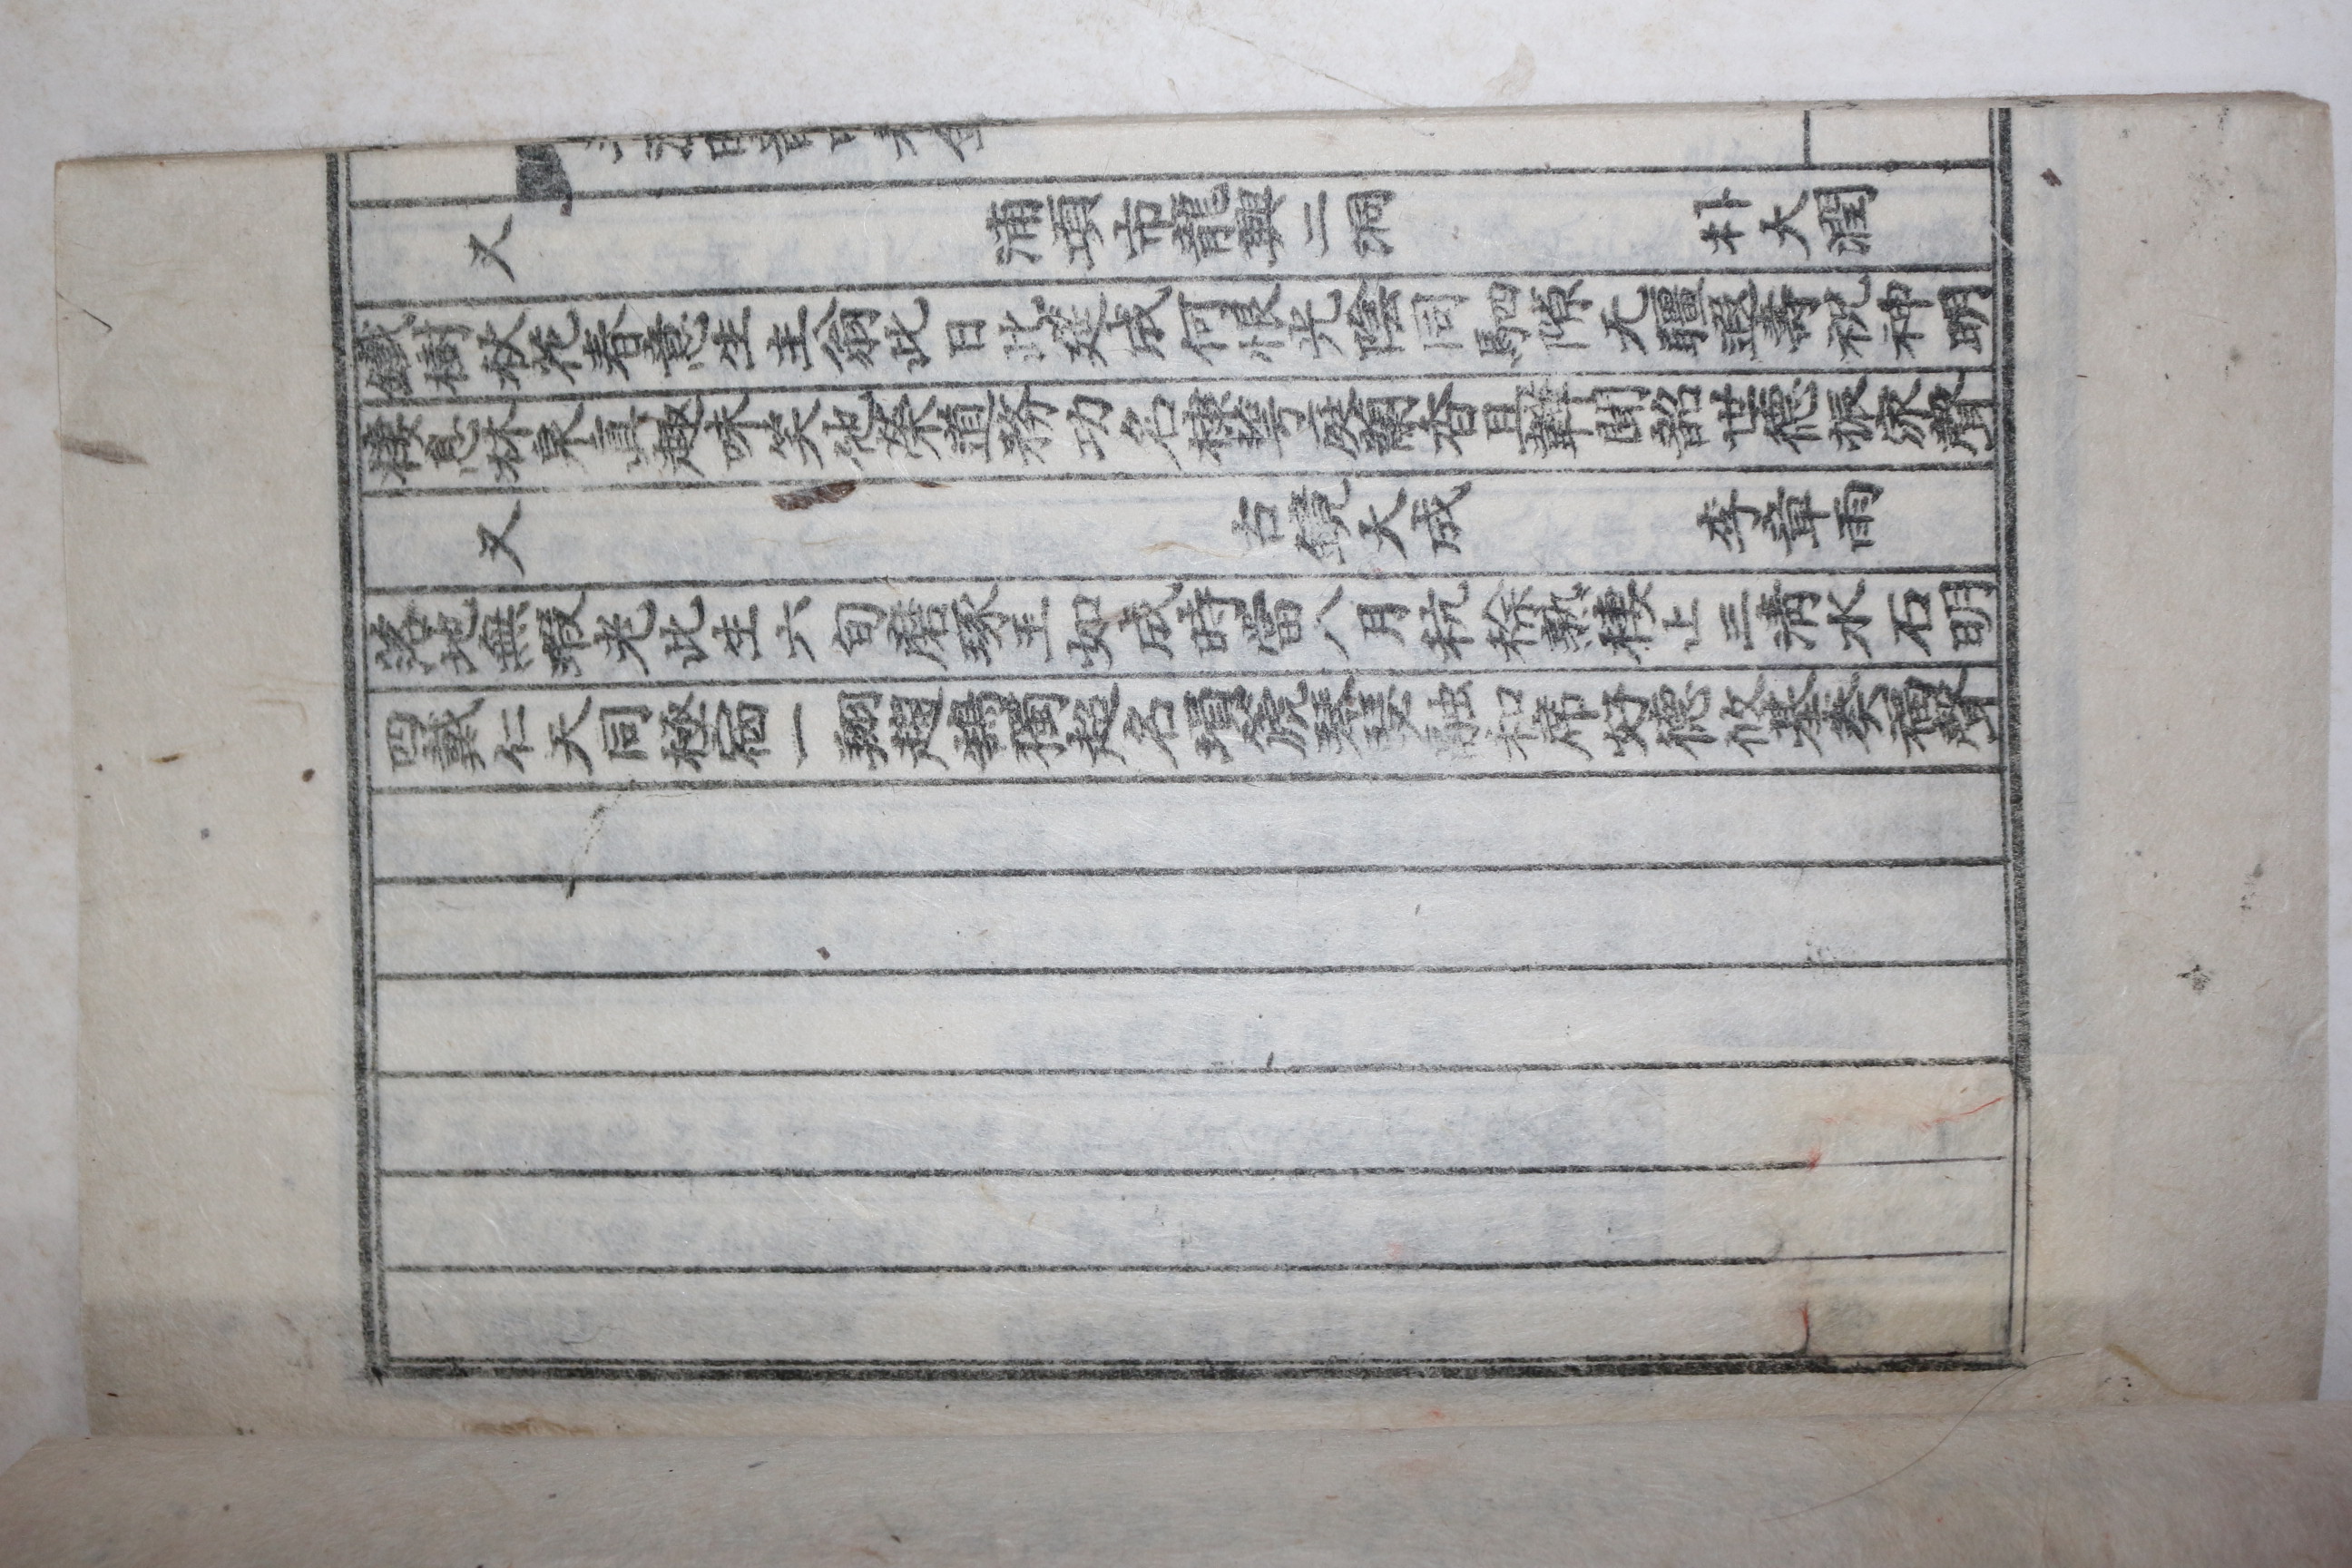 又 浦項市龍興二洞 朴大潤
鐵樹秋花春意生主翁此日此莚成何恨光陰同駟隙无疆遐壽祝神明
棲息林泉眞趣味笑他榮道務功名棣萼庭蘭香且韡聞韶世德振家聲
又 古鏡大成 李章雨
落地無瑕老此生六旬磨琢玉如成時當八月秔稌熟棲止三淸水石明
四戴仁天同極宿一翔趨鵠獨超名塤篪琴瑟融和席好德攸基奏福聲